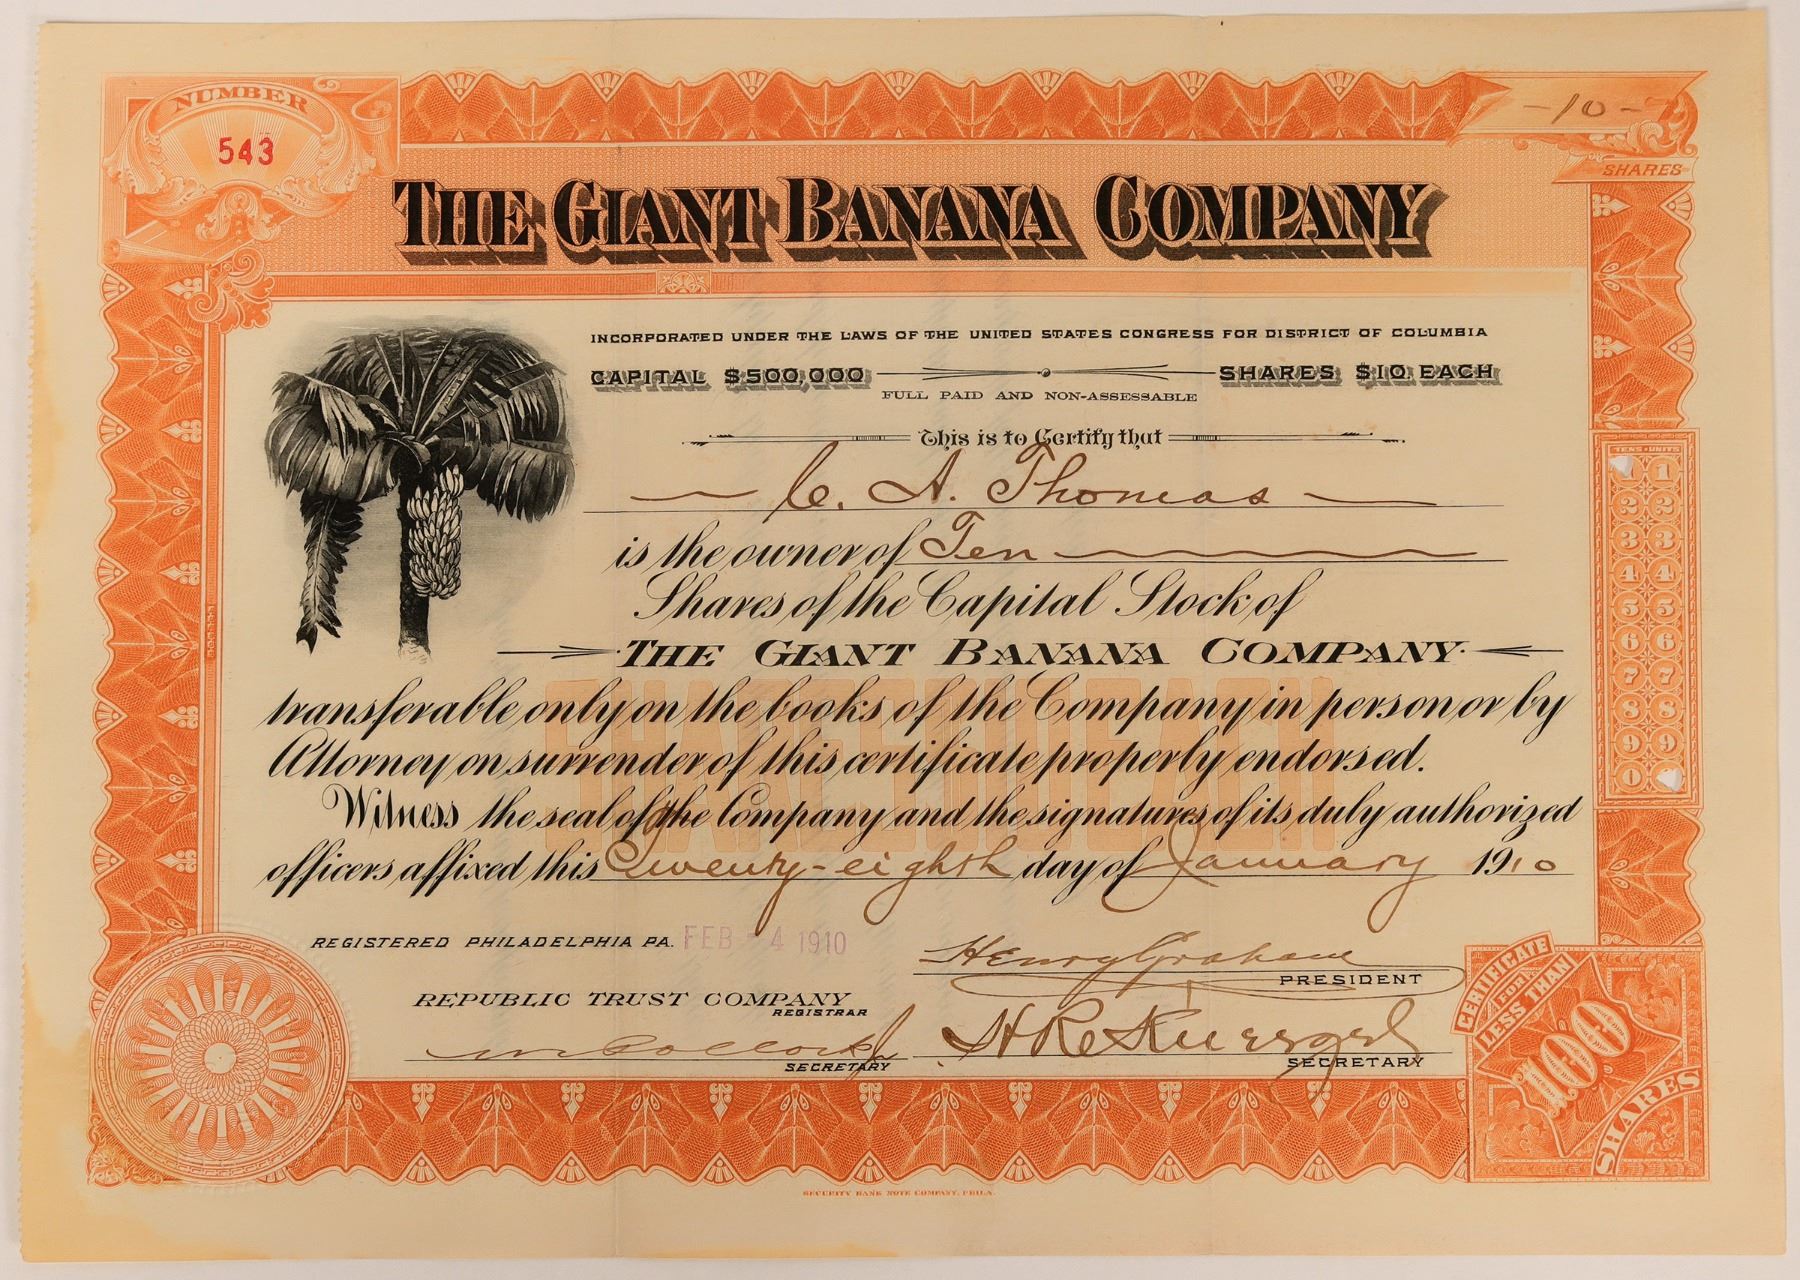 NUMBER
543
-10-
SHARES
THE GIANT BANANA COMPANY
INCORPORATED UNDER THE LAWS OF THE UNITED STATES CONGRESS FOR DISTRICT OF COLUMBIA
CAPITAL $500,000 SHARES $10 EACH
FULL PAID AND NON-ASSESSABLE
This is to Certify that
C. A. Thomas
is the owner of Ten
Shares of the Capital Stock of
THE GIANT BANANA COMPANY
transferable only on the books of the Company in person or by
Attorney on surrender of this certificate properly endorsed.
Witness the seal of the Company and the signatures of its duly authorized
officers affixed this Twenty-eighth day of January 1910
TENS UNITS
1
2 2
3 3
4 4
5 5
6 6
7 7
8 8
9 9
0
REGISTERED PHILADELPHIA PA. FEB - 4 1910
Henry Graham
PRESIDENT
REPUBLIC TRUST COMPANY
REGISTRAR
SECRETARY
SECRETARY
CERTIFICATE
FOR
LESS THAN
100
SHARES
SECURITY BANK NOTE COMPANY, PHILA.